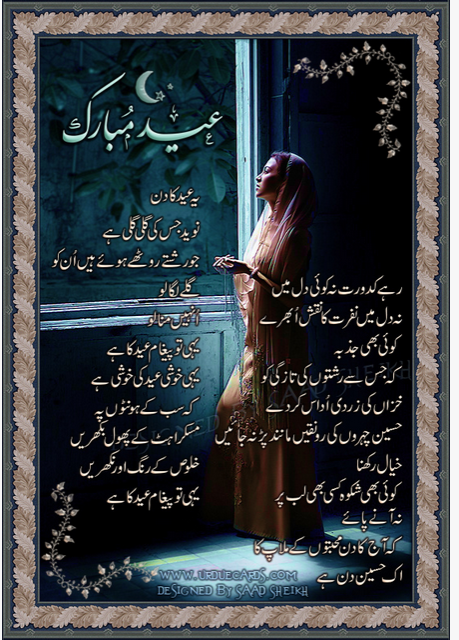 عید مُبارک
یہ عید کا دن
نوید جس کی گلی گلی ہے
جو رشتے روٹھے ہوئے ہیں اُن کو
گلے لگا لو
اُنہیں منا لو
یہی تو پیغام عید کا ہے
یہی خوشی عید کی خوشی ہے
کہ سب کے ہونٹوں پہ
مسکراہٹ کے پھول بکھریں
خلوص کے رنگ اور نکھریں
یہی تو پیغام عید کا ہے
رہے کدورت نہ کوئی دل میں
نہ دل میں نفرت کا نقش اُبھرے
کوئی بھی جذبہ
کہ جس سے رشتوں کی تازگی کو
خزاں کی زردی اُداس کر دے
حسین چہروں کی رونقیں ماند پڑ نہ جائیں
خیال رکھنا
کوئی بھی شکوہ کسی بھی لب پر
نہ آنے پائے
کہ آج کا دن محبتوں کے ملاپ کا
اک حسین دن ہے
www.urduecards.com
Designed By Saad Sheikh